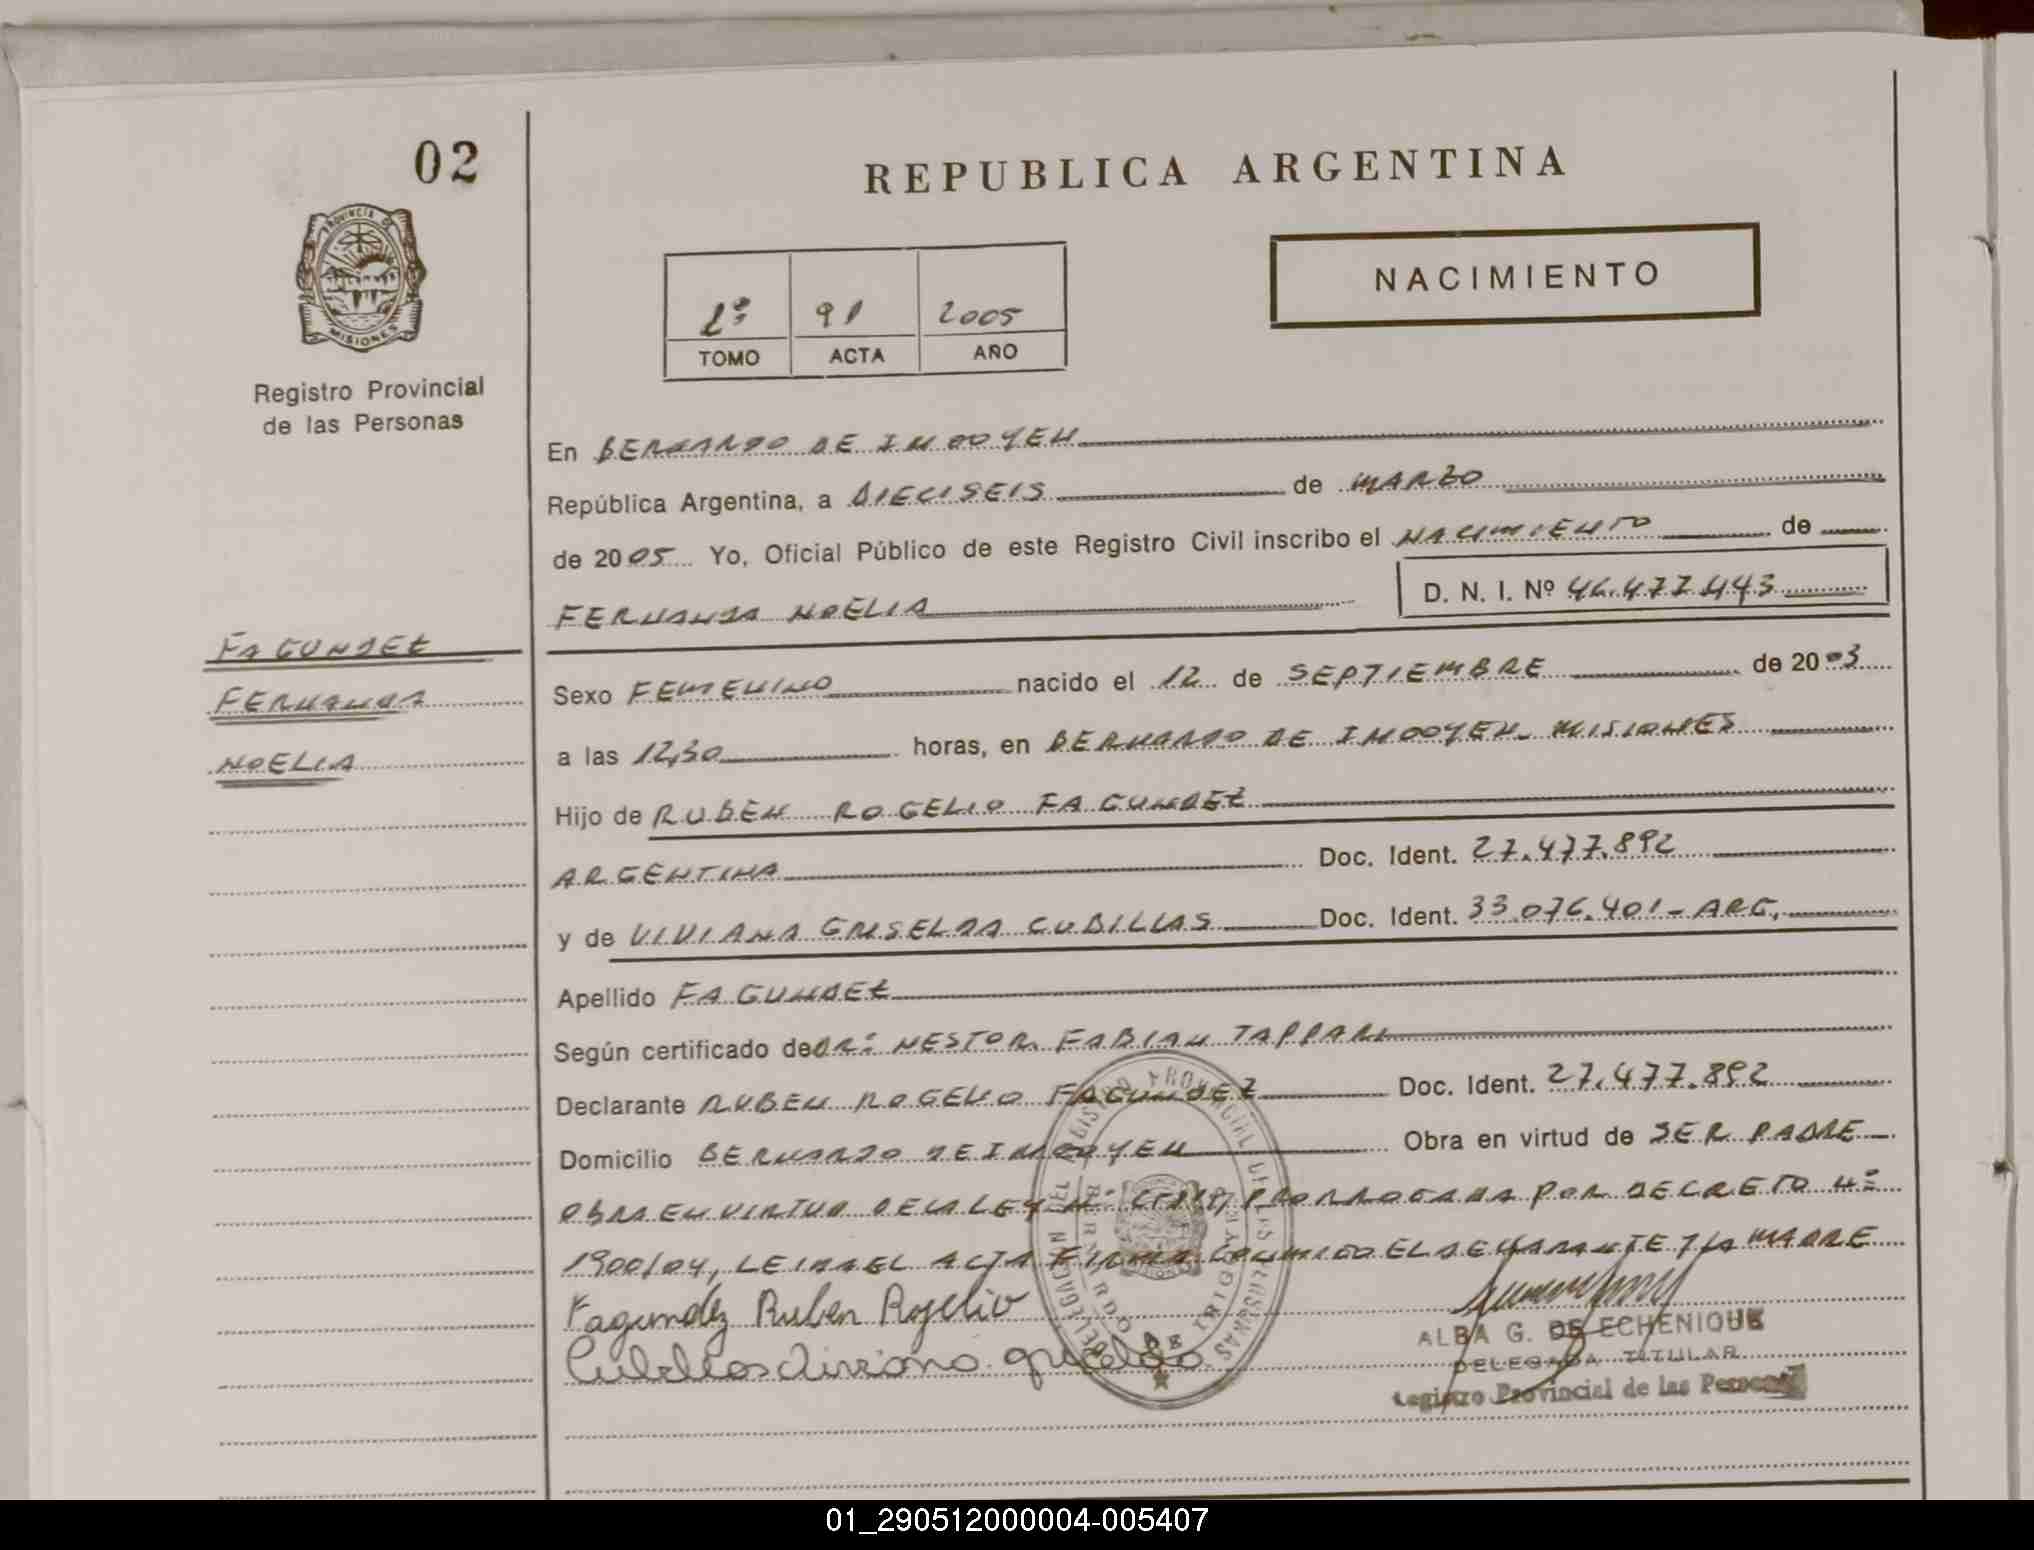 02
REPUBLICA ARGENTINA
PROVINCIA DE
MISIONES
Registro Provincial
de las Personas
91 2005
TOMO ACTA AÑO
NACIMIENTO
En BERNARDO DE IRIGOYEN
República Argentina, a DIECISEIS de MARZO
de 2005 Yo, Oficial Público de este Registro Civil inscribo el NACIMIENTO de
FERNANDA NOELIA D. N. I. Nº 46.477.443
FAGUNDEZ
FERNANDA
NOELIA
Sexo FEMENINO nacido el 12 de SEPTIEMBRE de 2003
a las 12,30 horas, en BERNARDO DE IRIGOYEN - MISIONES
Hijo de RUBEN ROGELIO FAGUNDEZ
ARGENTINA Doc. Ident. 27.477.892
y de VIVIANA GRISELDA CUBILLAS Doc. Ident. 33.076.401 - ARG.
Apellido FAGUNDEZ
Según certificado de DR: NESTOR FABIAN TAPPARI
Declarante RUBEN ROGELIO FAGUNDEZ Doc. Ident. 27.477.892
Domicilio BERNARDO DE IRIGOYEN Obra en virtud de SER PADRE
OBRA EN VIRTUD DE LA LEY Nº PRORROGADA POR DECRETO Nº
1900/04, LEIDA EL ACTA FIRMA CONMIGO EL DECLARANTE Y LA MADRE
Fagundez Ruben Rogelio
Cubillas Viviana griselda
DELEGACION DEL REGISTRO PROVINCIAL DE LAS PERSONAS
BERNARDO DE IRIGOYEN
ALBA G. DE ECHENIQUE
DELEGADA TITULAR
Registro Provincial de las Personas
01_290512000004-005407